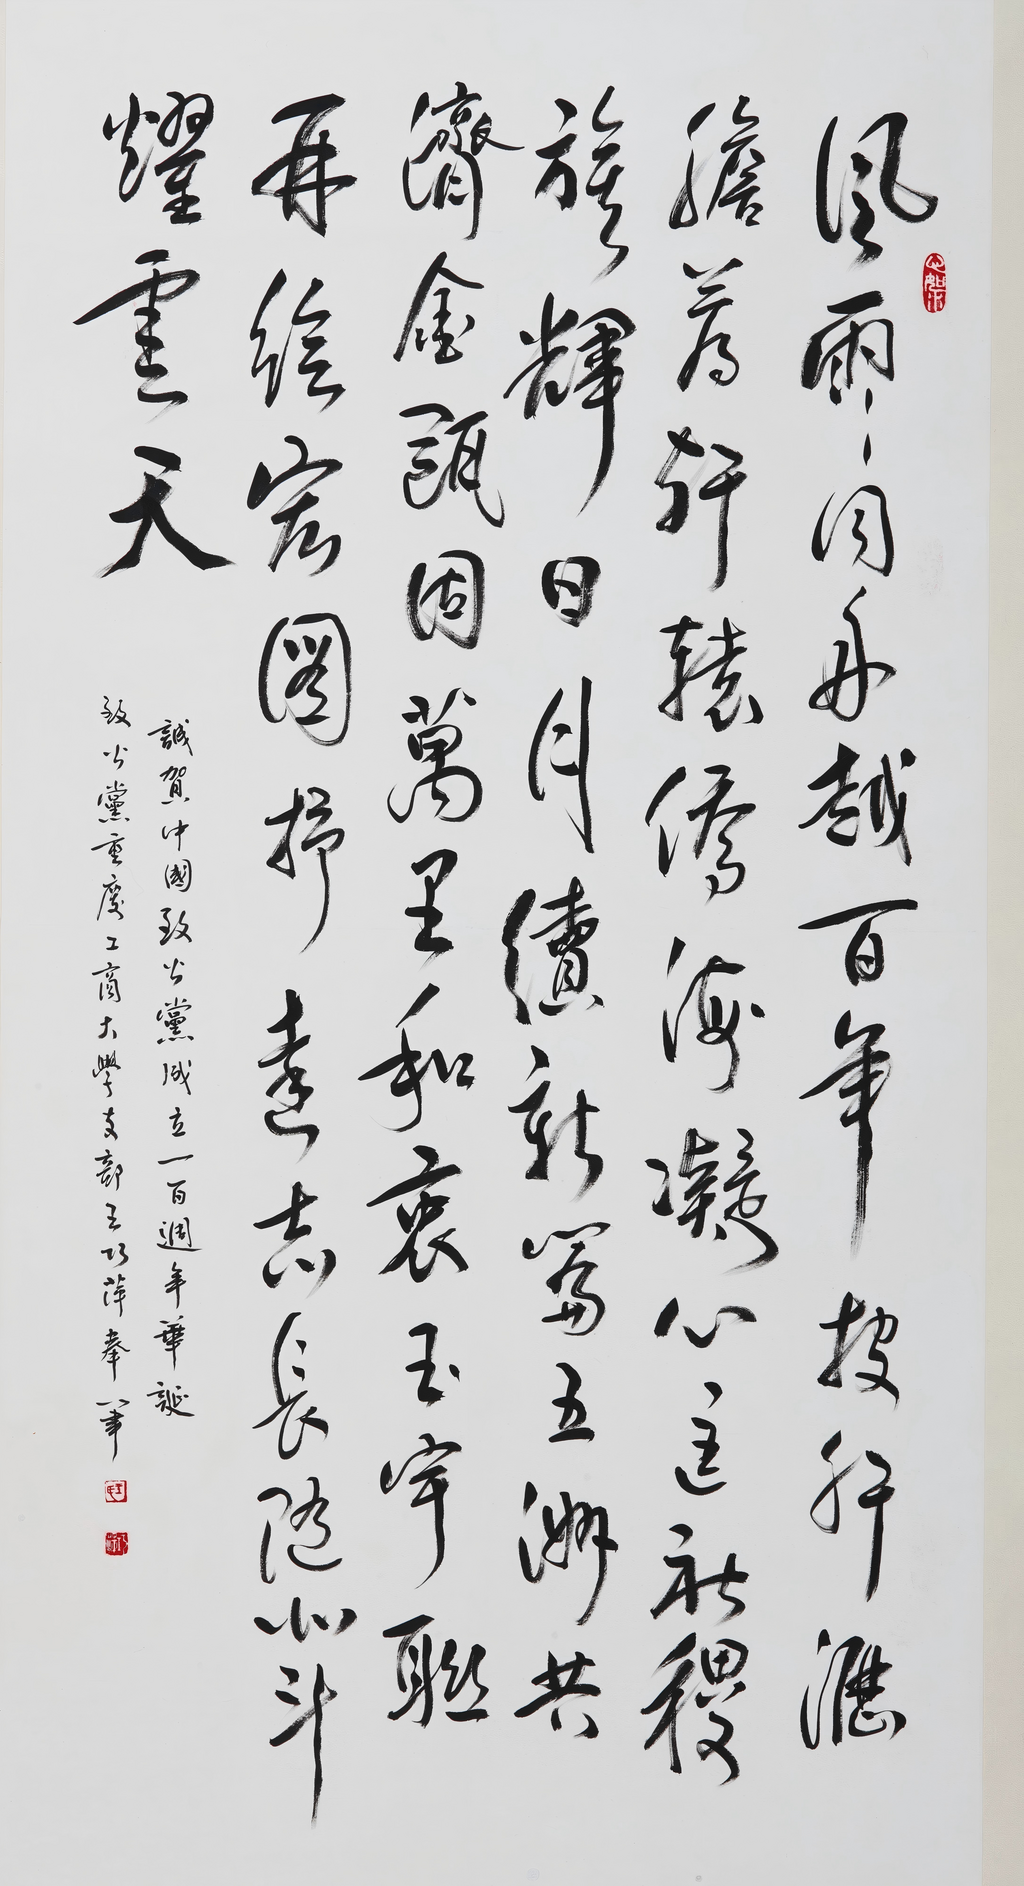 風雨同舟越百年披肝瀝
膽為軒轅僑海凝心匡社稷
旌輝日月續新篇五洲共
濟金甌固萬里和衷玉宇聯
再繪宏圖抒遠志長隨北斗
耀雲天
誠賀中國致公黨成立一百週年華誕
致公黨重慶工商大學支部王巧萍奉筆